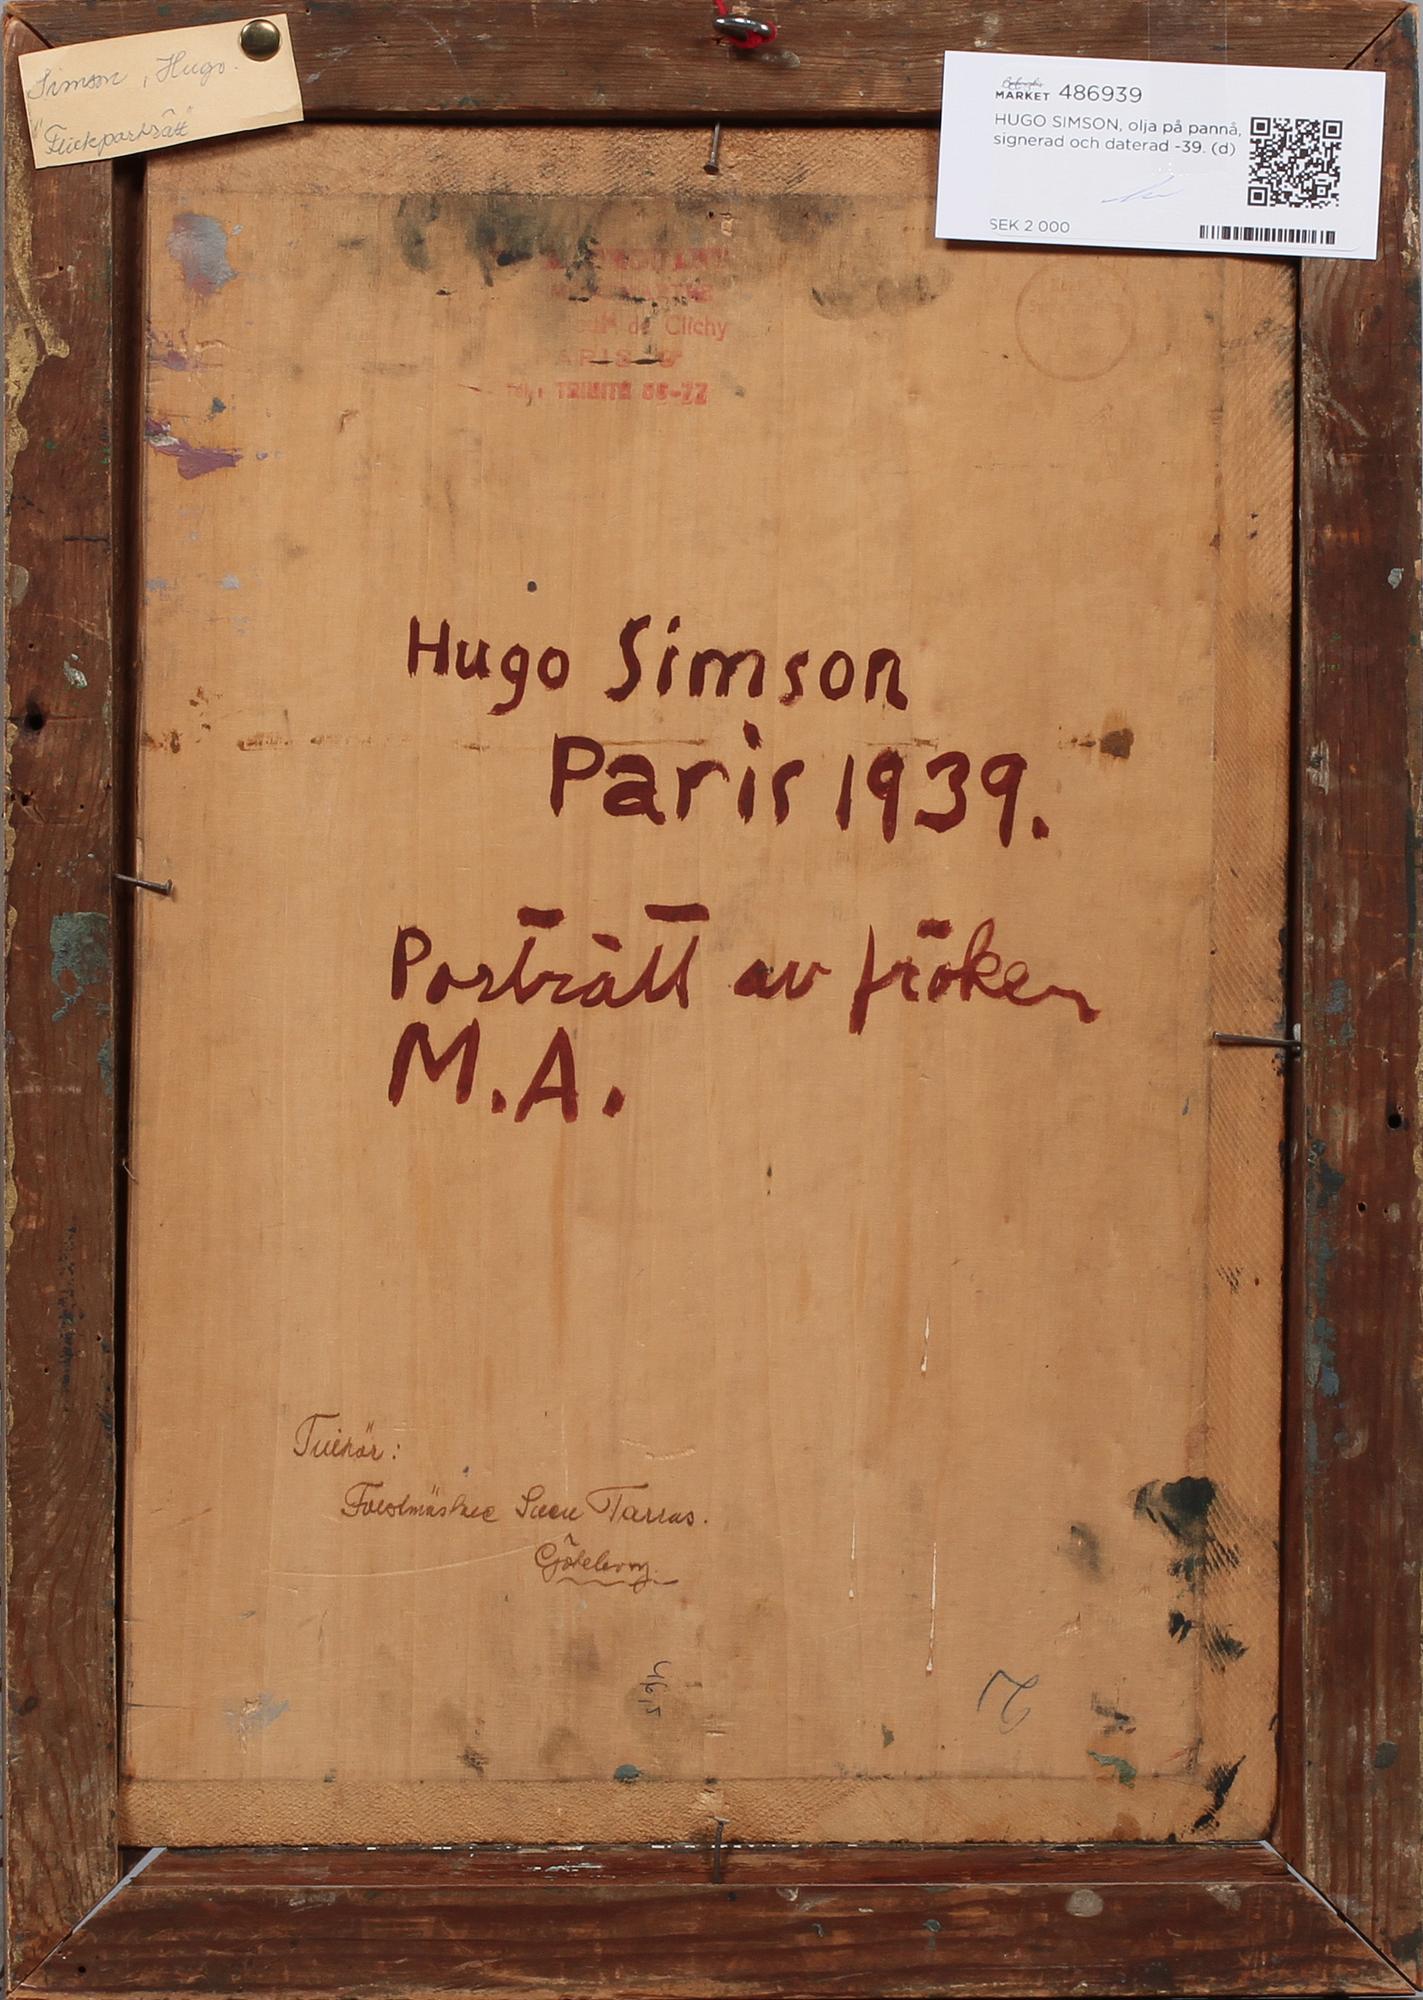 Simson, Hugo.
"Flickporträtt"
MARKET 486939
HUGO SIMSON, olja på pannå,
signerad och daterad -39. (d)
SEK 2 000
de Clichy
PARIS 9e
Tél. TRINITÉ 55-77
Hugo Simson
Paris 1939.
Porträtt av fröken
M.A.
Tillhör:
Sven Tarras.
Göteborg.
2